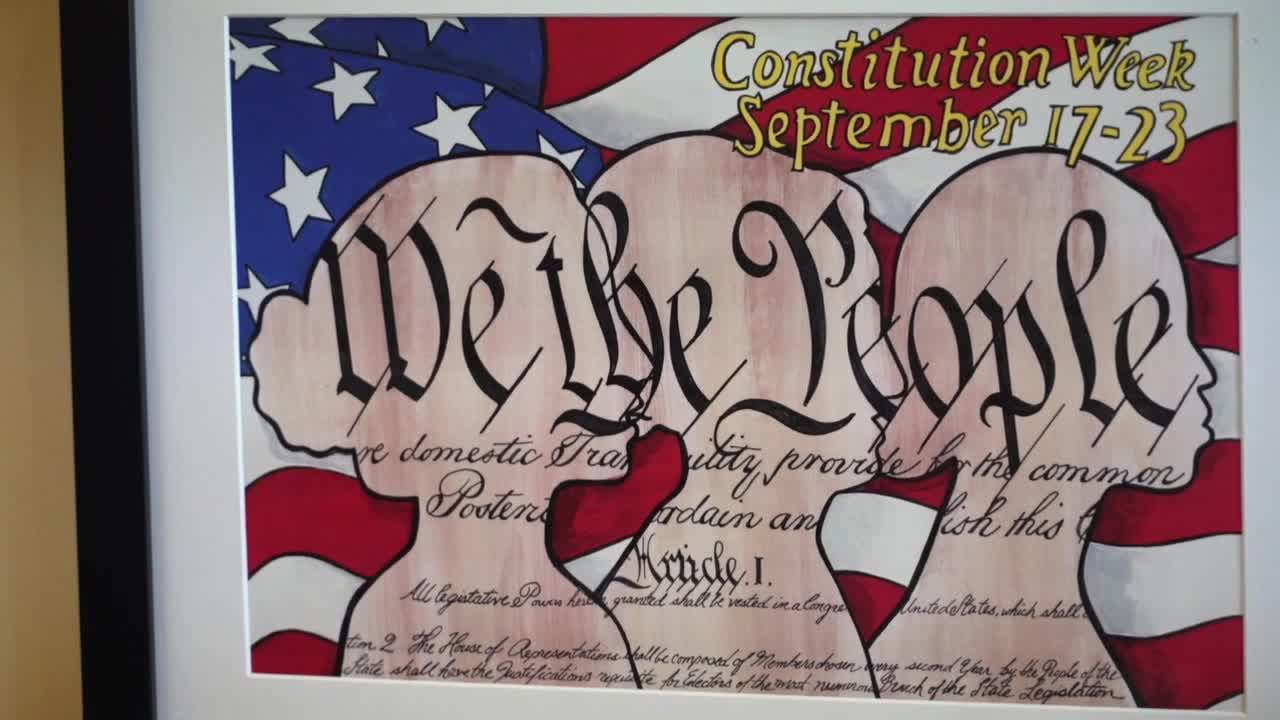 Constitution Week
September 17-23
We the People
re domestic Tran uility, provide for the common
Posteri ordain an lish this
Article. I.
All legislative Powers herein granted shall be vested in a Congre United States, which shall
tion 2 The House of Representatives shall be composed of Members chosen every second Year by the People of the
State shall have the Qualifications requisite for Electors of the most numerous Branch of the State Legislation